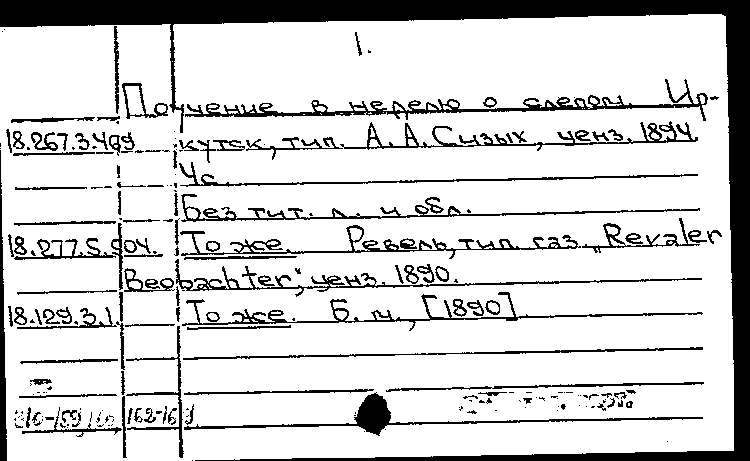 1.
Поучение в неделю о слепом. Ир-
18.267.3.499 кутск, тип. А. А. Сизых, ценз. 1894.
4с.
Без тит. л. и обл.
18.277.5.904. То же. Ревель, тип. газ. „Revaler
Beobachter“, ценз. 1890.
18.129.3.1. То же. Б. м., [1890]